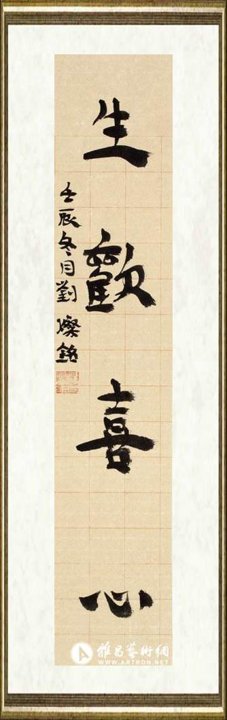 生歡喜心
壬辰冬月劉燦銘
雅昌藝術網
WWW.ARTRON.NET